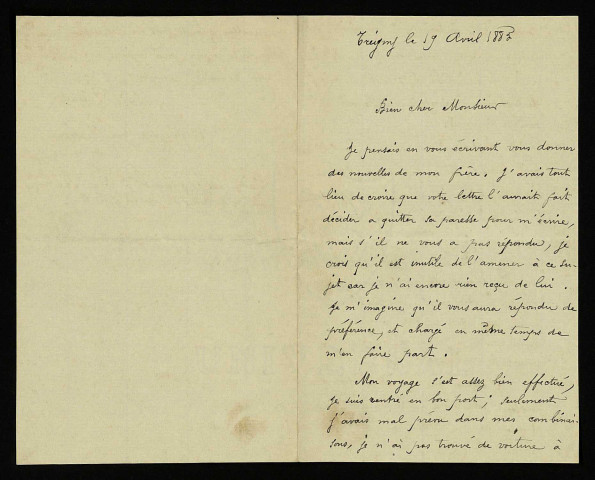 Treigny le 19 Avril 188
Bien cher Monsieur
Je pensais en vous écrivant vous donner
des nouvelles de mon frère. J'avais tout
lieu de croire que votre lettre l'aurait fait
décider a quitter sa paresse pour m'écrire,
mais s'il ne vous a pas répondu, je
crois qu'il est inutile de l'amener à ce su-
jet car je n'ai encore rien reçu de lui.
Je m'imagine qu'il vous aura répondu de
préférence, et chargé en même temps de
m'en faire part.
Mon voyage s'est assez bien effectué,
je suis rentré en bon port; seulement
j'avais mal prévu dans mes combinai-
sons, je n'ai pas trouvé de voiture à